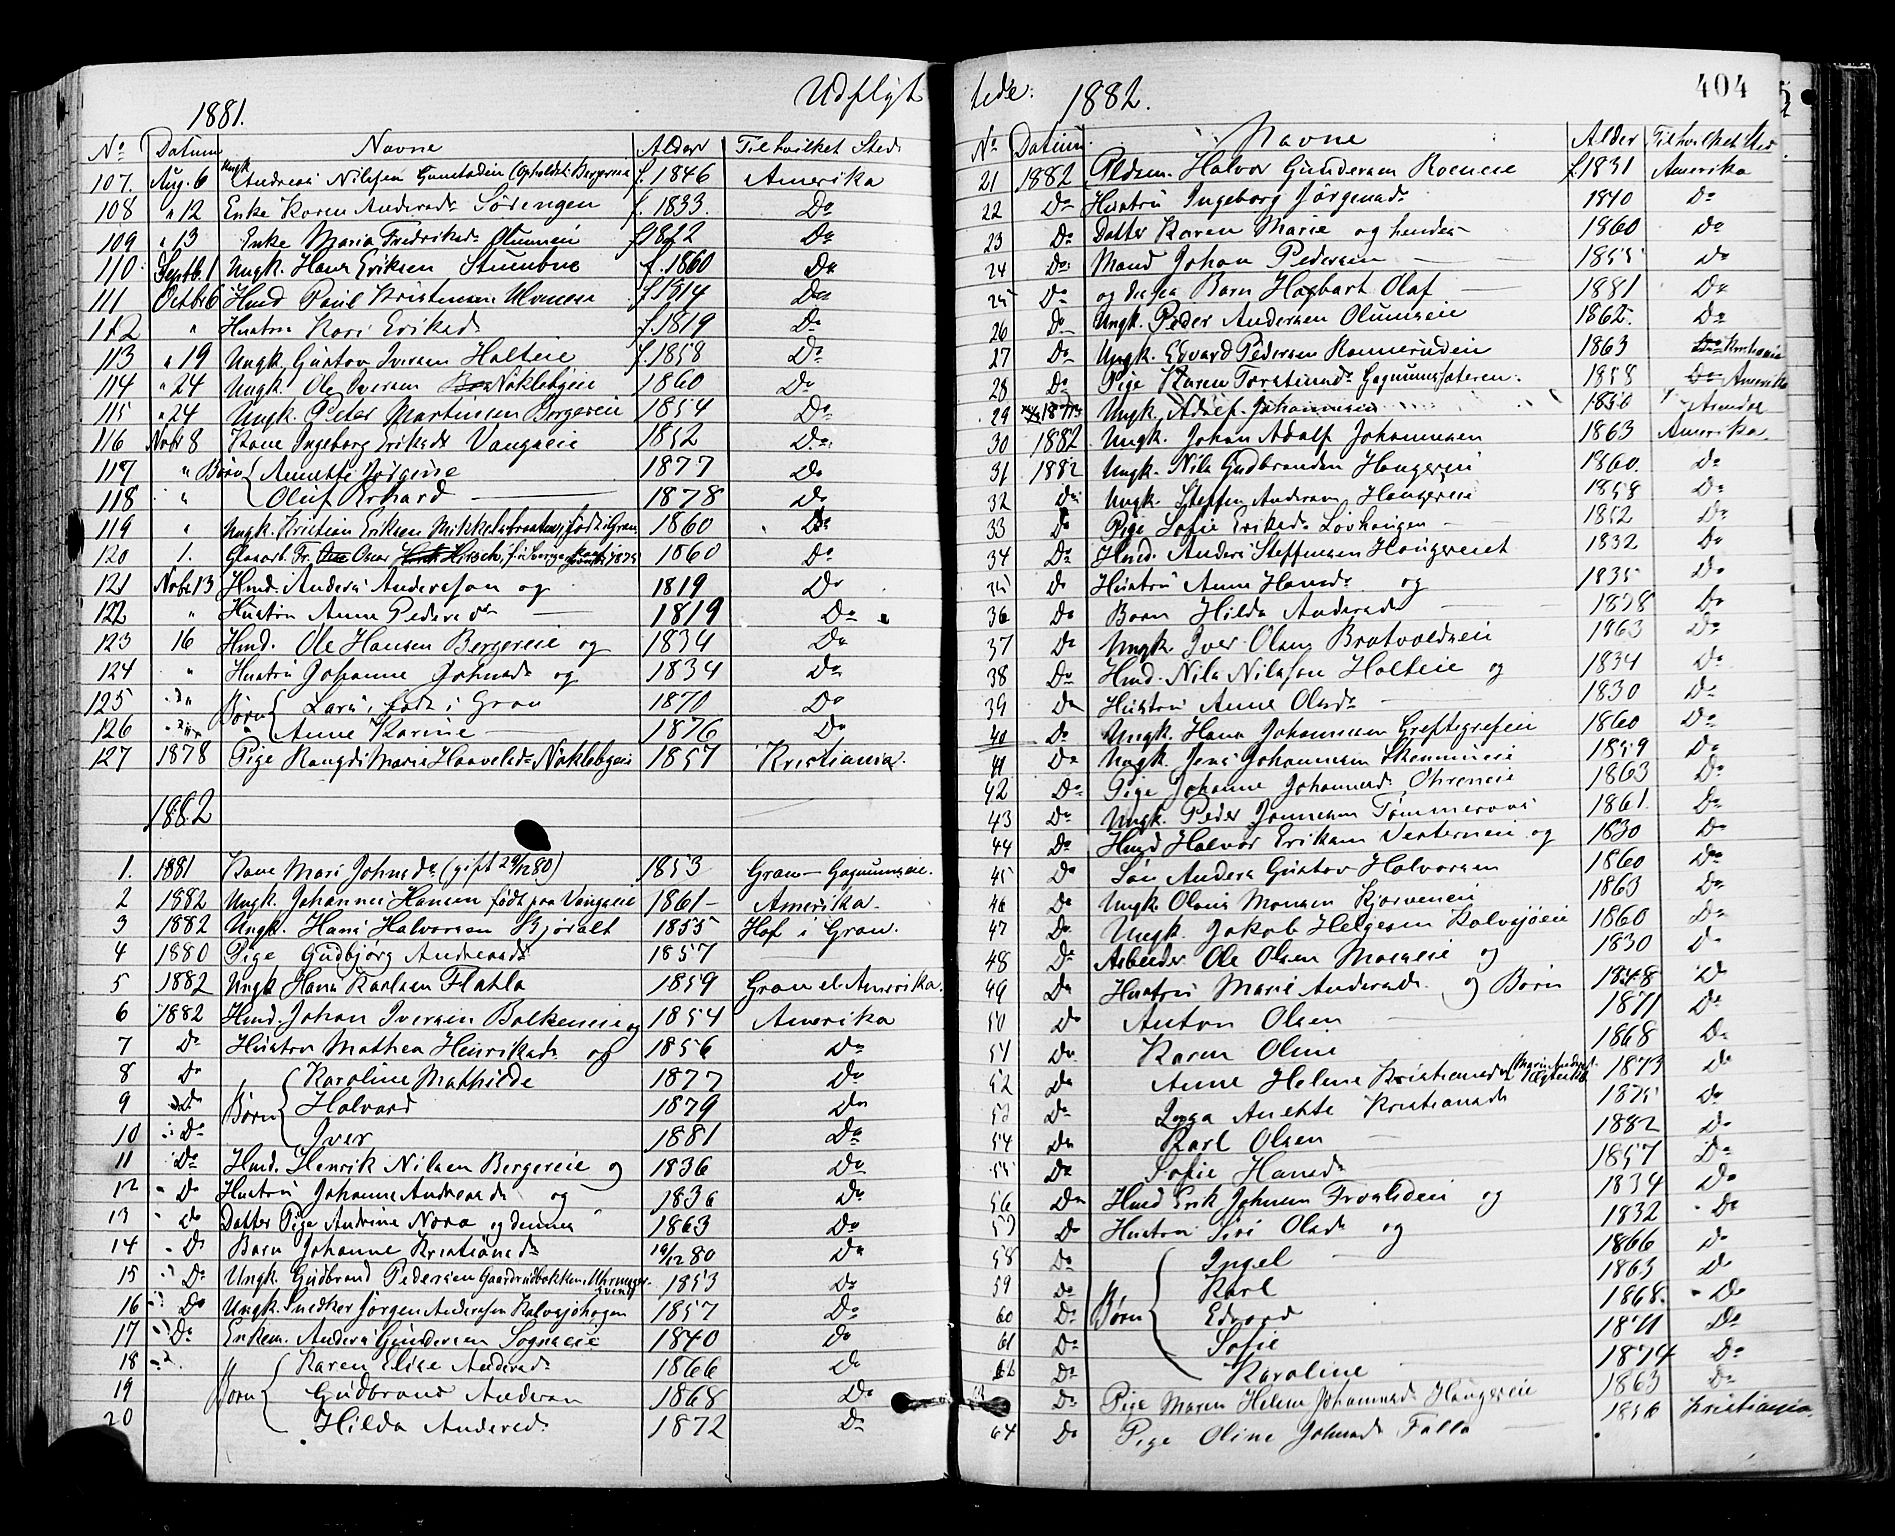 1881.
Udflyt
No Datum Navne Alder Til hvilket Sted
107. Aug. 6 Ungk Andreas Nilsen f. 1846 Amerika
108 " 12 Enke Karen Andersdr Sörengen f. 1833. Do
109 " 13 Enke Maria Fredriksdr f 1812 Do
110. Septb. 1 Ungk. Hans Eriksen Stumbne f. 1860 Do
111 Octbr 6 Hmd Paul Kristensen f 1814 Do
112 " Hustru Kari Eriksdr f. 1819 Do
113 " 19 Ungk. Gustav Iversen Holteie f. 1858 Do
114 " 24 Ungk. Ole Iversen Nöklebyeie 1860 Do
115 " 24 Ungk. Peter Martinsen Bergereie 1854 Do
116 Novbr 8 Kone Ingeborg Eriksdr Vangseie 1852 Do
117 " Börn Annette Jörgine 1877 Do
118 " Oluf Erhard 1878 Do
119 " Ungk. Kristian Eriksen født i Gran 1860 Do
120 1. Oscar 1860 Do
121 Novbr 13 Hmd. Anders Andersson og 1819 Do
122 " Hustru Anne Pedersdr 1819 Do
123 16 Hmd. Ole Hansen Bergereie og 1834 Do
124 " Hustru Johanne Johnsdr og 1834 Do
125 " Börn Lars, født i Gran 1870 Do
126 " Anne Karine 1876 Do
127 1878 Pige Rangdi Marie Haavelsdr Nöklebyeie 1857 Kristiania.
1882
1. 1881 Kone Mari Johnsdr (gift 29/12 80) 1853 Gran - Gagnumseie.
2 1882 Ungk. Johannes Hansen født paa Vangseie 1861 - Amerika.
3 1882 Ungk. Hans Halvorsen Skjøralt 1855 Hof i Gran.
4 1880 Pige Gudbjørg Andreasdr 1857
5 1882 Ungk Hans Karlsen Flatla 1859 Gran el. Amerika.
6 1882 Hmd. Johan Iversen Bolkeneie og 1854 Amerika
7 Do Hustru Mathea Henriksdr og 1856 Do
8 Do Karoline Mathilde 1877 Do
9 Do Børn Halvard 1879 Do
10 Do Iver 1881 Do
11 Do Hmd. Henrik Nilsen Bergereie og 1836 Do
12 " Do Hustru Johanne Andreasdr og 1836 Do
13 " Do Datter Pige Andrine Nora og dennes 1863 Do
14 " Do Barn Johanne Kristiansdr 19/12 80 Do
15 " Do Ungk. Gudbrand Pedersen 1853 Do
16 " Do Ungk. Snedker Jørgen Andersen Kalvsjøhagen 1857 Do
17 " Do Enkem. Anders Gundersen Sognseie 1840 Do
18 " Karen Elise Andersdr 1866 Do
19 Børn Gudbrand Andersen 1868 Do
20 Hilda Andersdr 1872 Do
tede: 1882. 404
No Datum. Navne Alder Til hvilket Sted
21 1882 Pldsm. Halvor Gundersen Roeneie f. 1831 Amerika
22 Do Hustru Ingeborg Jörgensdr 1840 Do
23 Do Datter Karen Marie og hendes 1860 Do
24 Do Mand Johan Pedersen 1855 Do
25 Do og disses Barn Hagbart Olaf 1881 Do
26 Do Ungk. Peder Andersen Olumseie 1862. Do
27 Do Ungk. Edvard Pedersen 1863 Do Kristiania
28 Do Pige Karen Torstensdr Gagnumsæteren. 1858 Do Amerika
29 Ungk. Adolf Johannesen 1850
30 1882 Ungk. Johan Adolf Johannesen 1863 Amerika
31 1882 Ungk. Nils Gudbrandsen Haugereie 1860. Do
32 Do Ungk. Steffen Andersen Haugereie 1858 Do
33 Do Pige Sofie Eriksdr Lövhaugen 1852 Do
34 Do Hmd. Anders Steffensen Haugereiet 1832 Do
35 Do Hustru Anne Hansdr og 1835 Do
36 Do Barn Hilda Andersdr 1878 Do
37 Do Ungk. Iver Olsen Bratvoldseie 1863 Do
38 Do Hmd. Nils Nilsson Holteie og 1834 Do
39 Do Hustru Anne Olsdr 1830 Do
40 Do Ungk. Hans Johannesen Greftegrefeie 1860 Do
41 Do Ungk. Jens Johannesen 1859 Do
42 Do Pige Johanne Johannesdr Ohreneie 1863 Do
43 Do Ungk. Peder Jonnesen 1861. Do
44 Do Hmd Halvor Eriksen Vesterneie og 1830 Do
45 Do Søn Anders Gustav Halvorsen 1860 Do
46 Do Ungk. Olaus Monsen Kjorveneie 1863 Do
47 Do Ungk. Jakob Helgesen Kalvsjøeie 1860 Do
48 Do Arbeider Ole Olsen Moeneie og 1830 Do
49 Do Hustru Marie Andersdr og Børn 1848 Do
50 Do Anton Olsen 1871 Do
51 Do Karen Oline 1868 Do
52 Do Anne Helene Kristiansdr 1873 Do
53 Do Inga Anette Kristiansdr 1875 Do
54 Do Karl Olsen 1882 Do
55 Do Sofie Hansdr 1857 Do
56 Do Hmd Erik Johnsen og 1834 Do
57 Do Hustru Siri Olsdr og 1832 Do
58 Do Ingel 1866 Do
59 Do Karl 1863 Do
60 Do Børn Edvard 1868. Do
61 Do Sofie 1871 Do
62 Do Karoline 1874 Do
Do Pige Maren Helene Johannesdr Haugereie 1863 Do
64 Do Pige Oline Johnsdr Falla 1856 Kristiania.